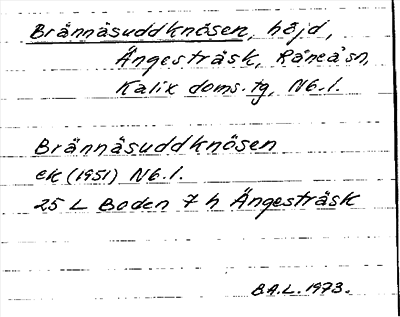 Brännäsuddknösen, höjd,
Ängesträsk, Råneå sn,
Kalix doms. tg, Nb. l.
Brännäsuddknösen
ek (1951) Nb. l.
25 L Boden 7 h Ängesträsk
B.A.L. 1973.